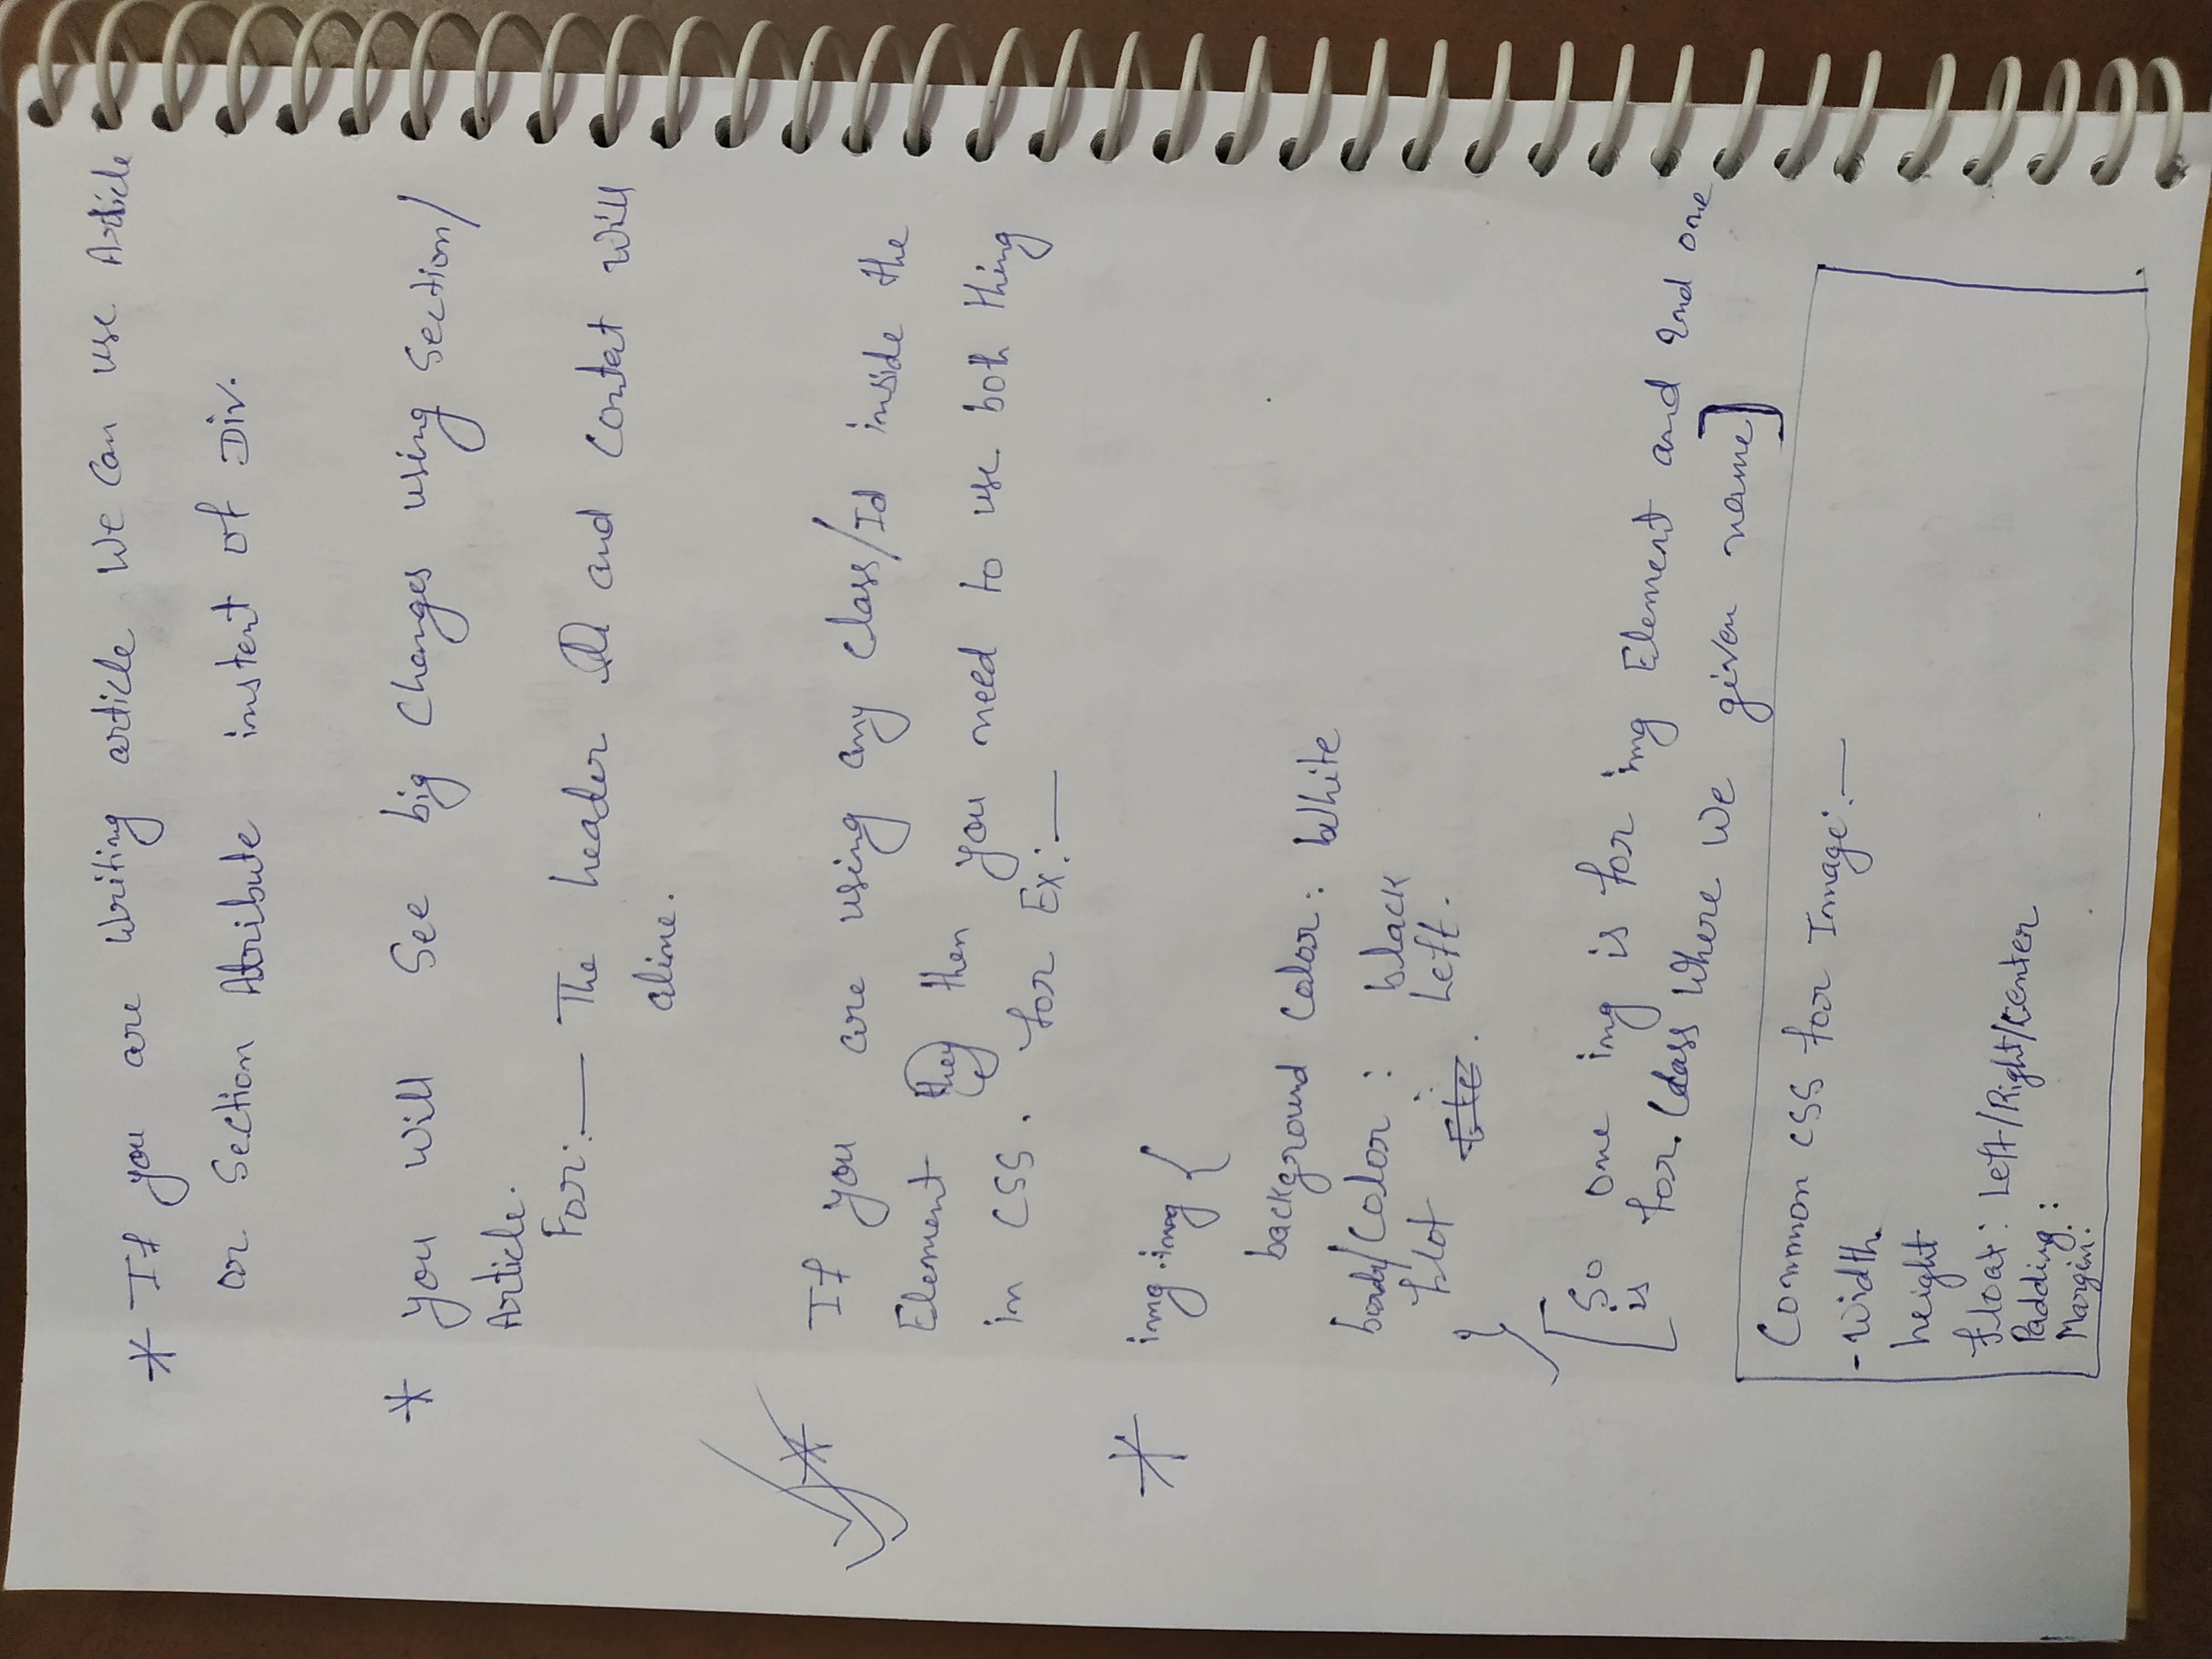 * If you are writing article we can use Article
or Section Attribute instent of Div.
* you will see big changes using Section/
Article.
For:— The header and contat will
aline.
* If you are using any class/Id inside the
Element they then you need to use both thing
in CSS. for Ex:—
* img.img {
background color: white
color: black
flot : Left.
}
[So one img is for img Element and 2nd one
is for. Class where we given name]
Common CSS for Image:—
-width
height
float: Left/Right/center
Padding:
Margin: